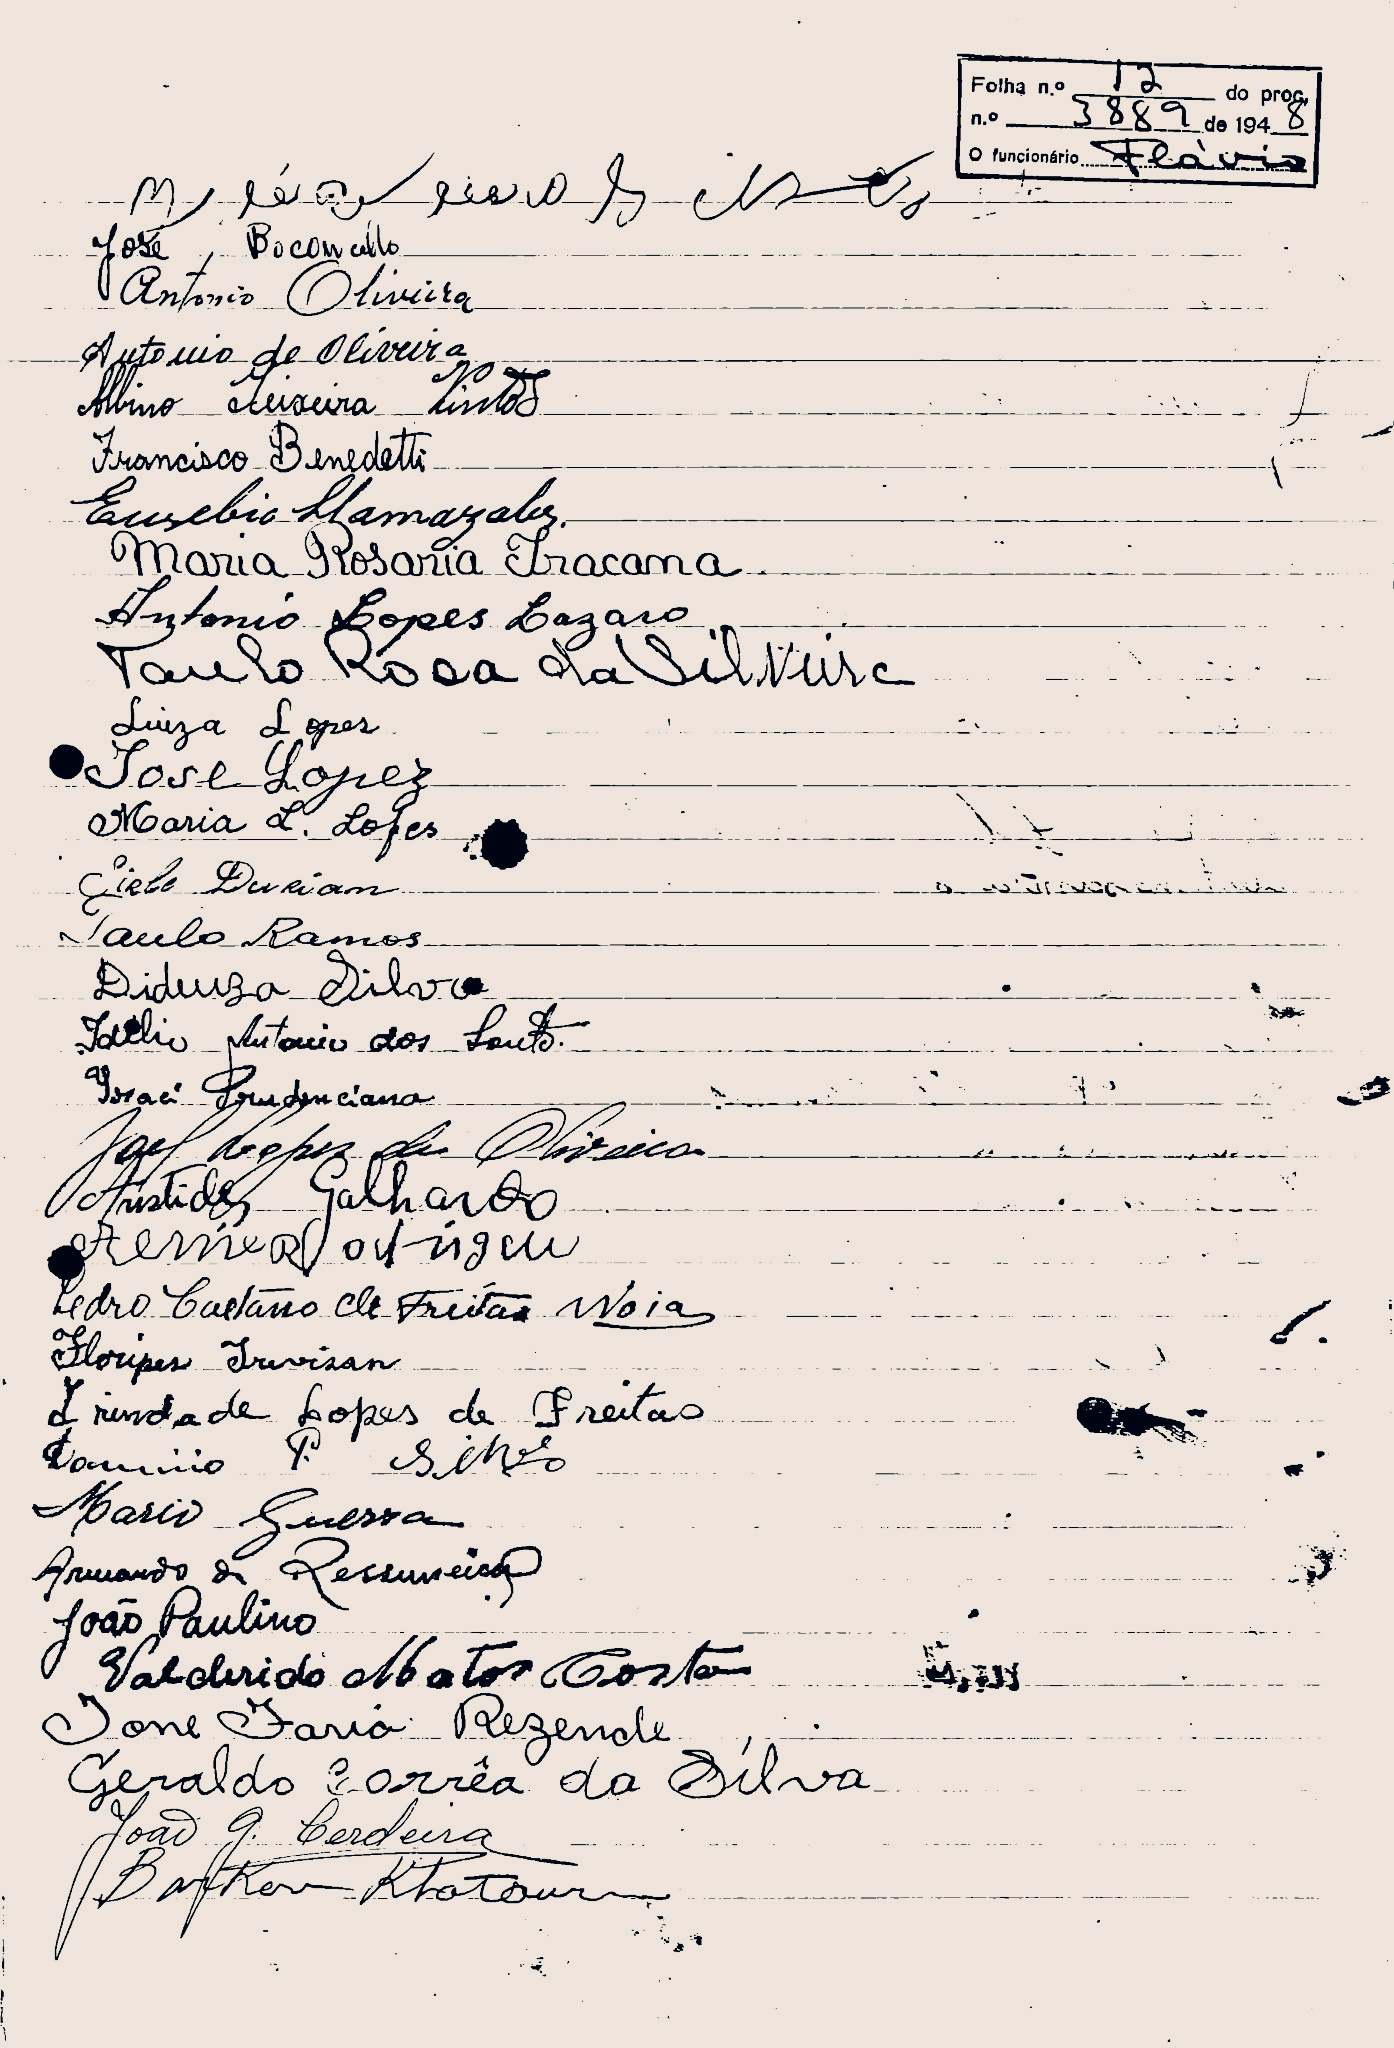 Folha n.º 12 do proc.
n.º 3889 de 1948
O funcionário Flávio
José
Antonio Oliveira
Antonio de Oliveira
Albino Teixeira Pinto
Francisco Benedetti
Eusebio Llamazales.
Maria Rosaria Iracama
Antonio Lopes Lazaro
Paulo Rosa da Silveira
Luiza Lopes
Jose Lopez
Maria L. Lopes
Durian
Paulo Ramos
Silva
Antonio dos Santos
Iraci Prudenciana
Joel Lopes de Oliveira
Aristides Galhardo
Pedro Caetano de Freitas Noia
Floripes Trevizan
Trindade Lopes de Freitas
P.
Mario Guerra
Armando de
João Paulino
Valderido Matos Costa
Ione Faria Rezende
Geraldo Corrêa da Silva
João G. Cerdeira